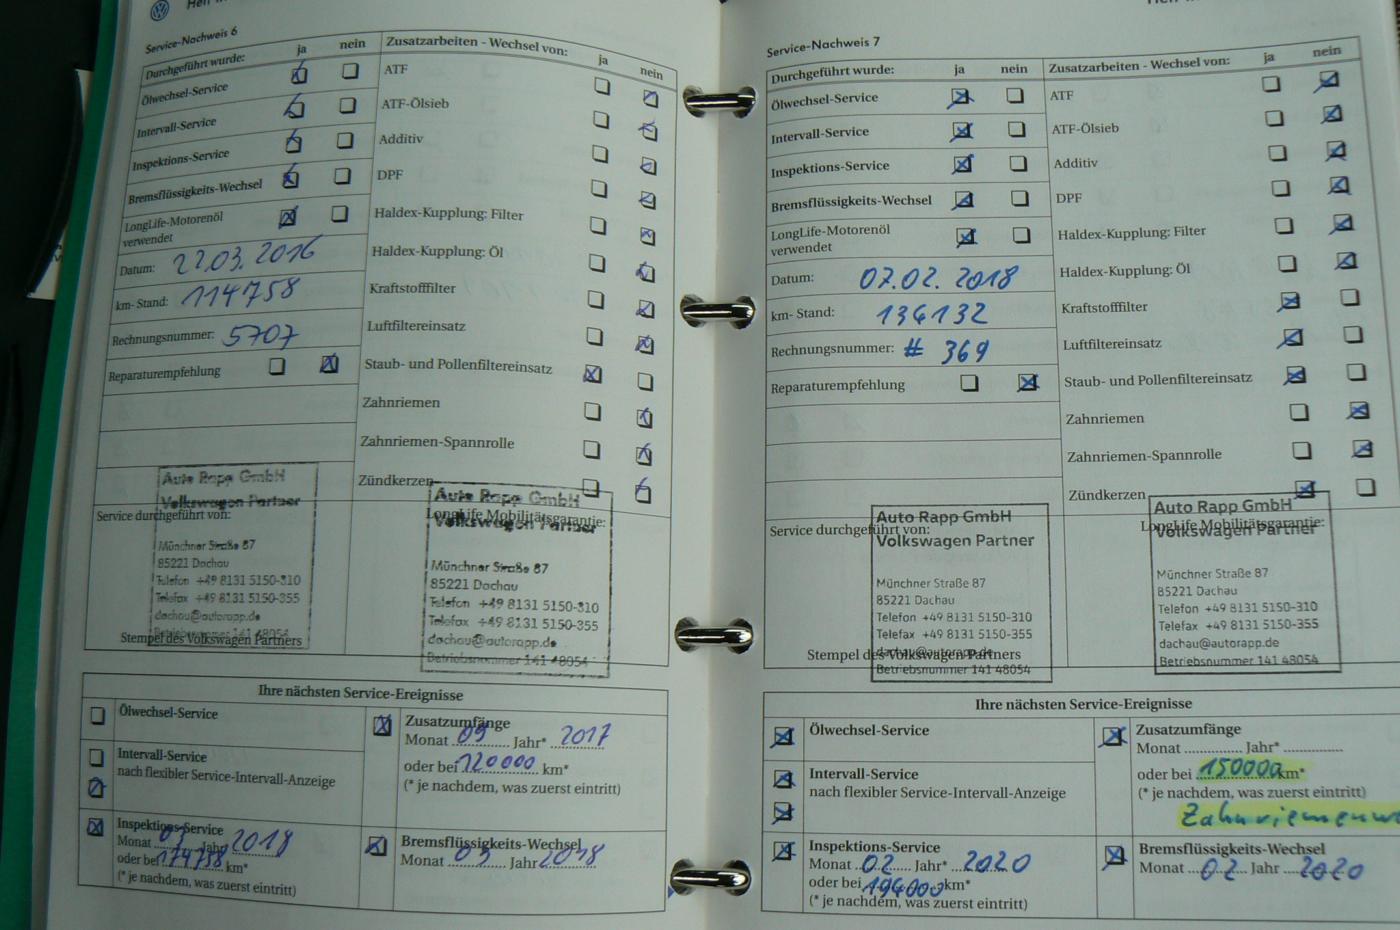 Service-Nachweis 6
Durchgeführt wurde: ja nein
Ölwechsel-Service
Intervall-Service
Inspektions-Service
Bremsflüssigkeits-Wechsel
LongLife-Motorenöl
verwendet
Datum: 22.03.2016
km-Stand: 114758
Rechnungsnummer: 5707
Reparaturempfehlung
Zusatzarbeiten - Wechsel von: ja nein
ATF
ATF-Ölsieb
Additiv
DPF
Haldex-Kupplung: Filter
Haldex-Kupplung: Öl
Kraftstofffilter
Luftfiltereinsatz
Staub- und Pollenfiltereinsatz
Zahnriemen
Zahnriemen-Spannrolle
Zündkerzen
Service durchgeführt von:
Auto Rapp GmbH
Volkswagen Partner
Münchner Straße 87
85221 Dachau
Telefon +49 8131 5150-310
Telefax +49 8131 5150-355
dachau@autorapp.de
Betriebsnummer 141 48054
Stempel des Volkswagen Partners
LongLife Mobilitätsgarantie:
Auto Rapp GmbH
Volkswagen Partner
Münchner Straße 87
85221 Dachau
Telefon +49 8131 5150-310
Telefax +49 8131 5150-355
dachau@autorapp.de
Betriebsnummer 141 48054
Ihre nächsten Service-Ereignisse
Ölwechsel-Service
Intervall-Service
nach flexibler Service-Intervall-Anzeige
Inspektions-Service
Monat 03 Jahr 2018
oder bei 174758 km*
(* je nachdem, was zuerst eintritt)
Zusatzumfänge
Monat 03 Jahr* 2017
oder bei 120000 km*
(* je nachdem, was zuerst eintritt)
Bremsflüssigkeits-Wechsel
Monat 03 Jahr 2018
Service-Nachweis 7
Durchgeführt wurde: ja nein
Ölwechsel-Service
Intervall-Service
Inspektions-Service
Bremsflüssigkeits-Wechsel
LongLife-Motorenöl
verwendet
Datum: 07.02.2018
km- Stand: 134132
Rechnungsnummer: # 369
Reparaturempfehlung
Zusatzarbeiten - Wechsel von: ja nein
ATF
ATF-Ölsieb
Additiv
DPF
Haldex-Kupplung: Filter
Haldex-Kupplung: Öl
Kraftstofffilter
Luftfiltereinsatz
Staub- und Pollenfiltereinsatz
Zahnriemen
Zahnriemen-Spannrolle
Zündkerzen
Service durchgeführt von:
Auto Rapp GmbH
Volkswagen Partner
Münchner Straße 87
85221 Dachau
Telefon +49 8131 5150-310
Telefax +49 8131 5150-355
dachau@autorapp.de
Betriebsnummer 141 48054
Stempel des Volkswagen Partners
LongLife Mobilitätsgarantie:
Auto Rapp GmbH
Volkswagen Partner
Münchner Straße 87
85221 Dachau
Telefon +49 8131 5150-310
Telefax +49 8131 5150-355
dachau@autorapp.de
Betriebsnummer 141 48054
Ihre nächsten Service-Ereignisse
Ölwechsel-Service
Intervall-Service
nach flexibler Service-Intervall-Anzeige
Inspektions-Service
Monat 02 Jahr* 2020
oder bei 194000 km*
(* je nachdem, was zuerst eintritt)
Zusatzumfänge
Monat Jahr*
oder bei 150000 km*
(* je nachdem, was zuerst eintritt)
Zahnriemenw
Bremsflüssigkeits-Wechsel
Monat 02 Jahr 2020